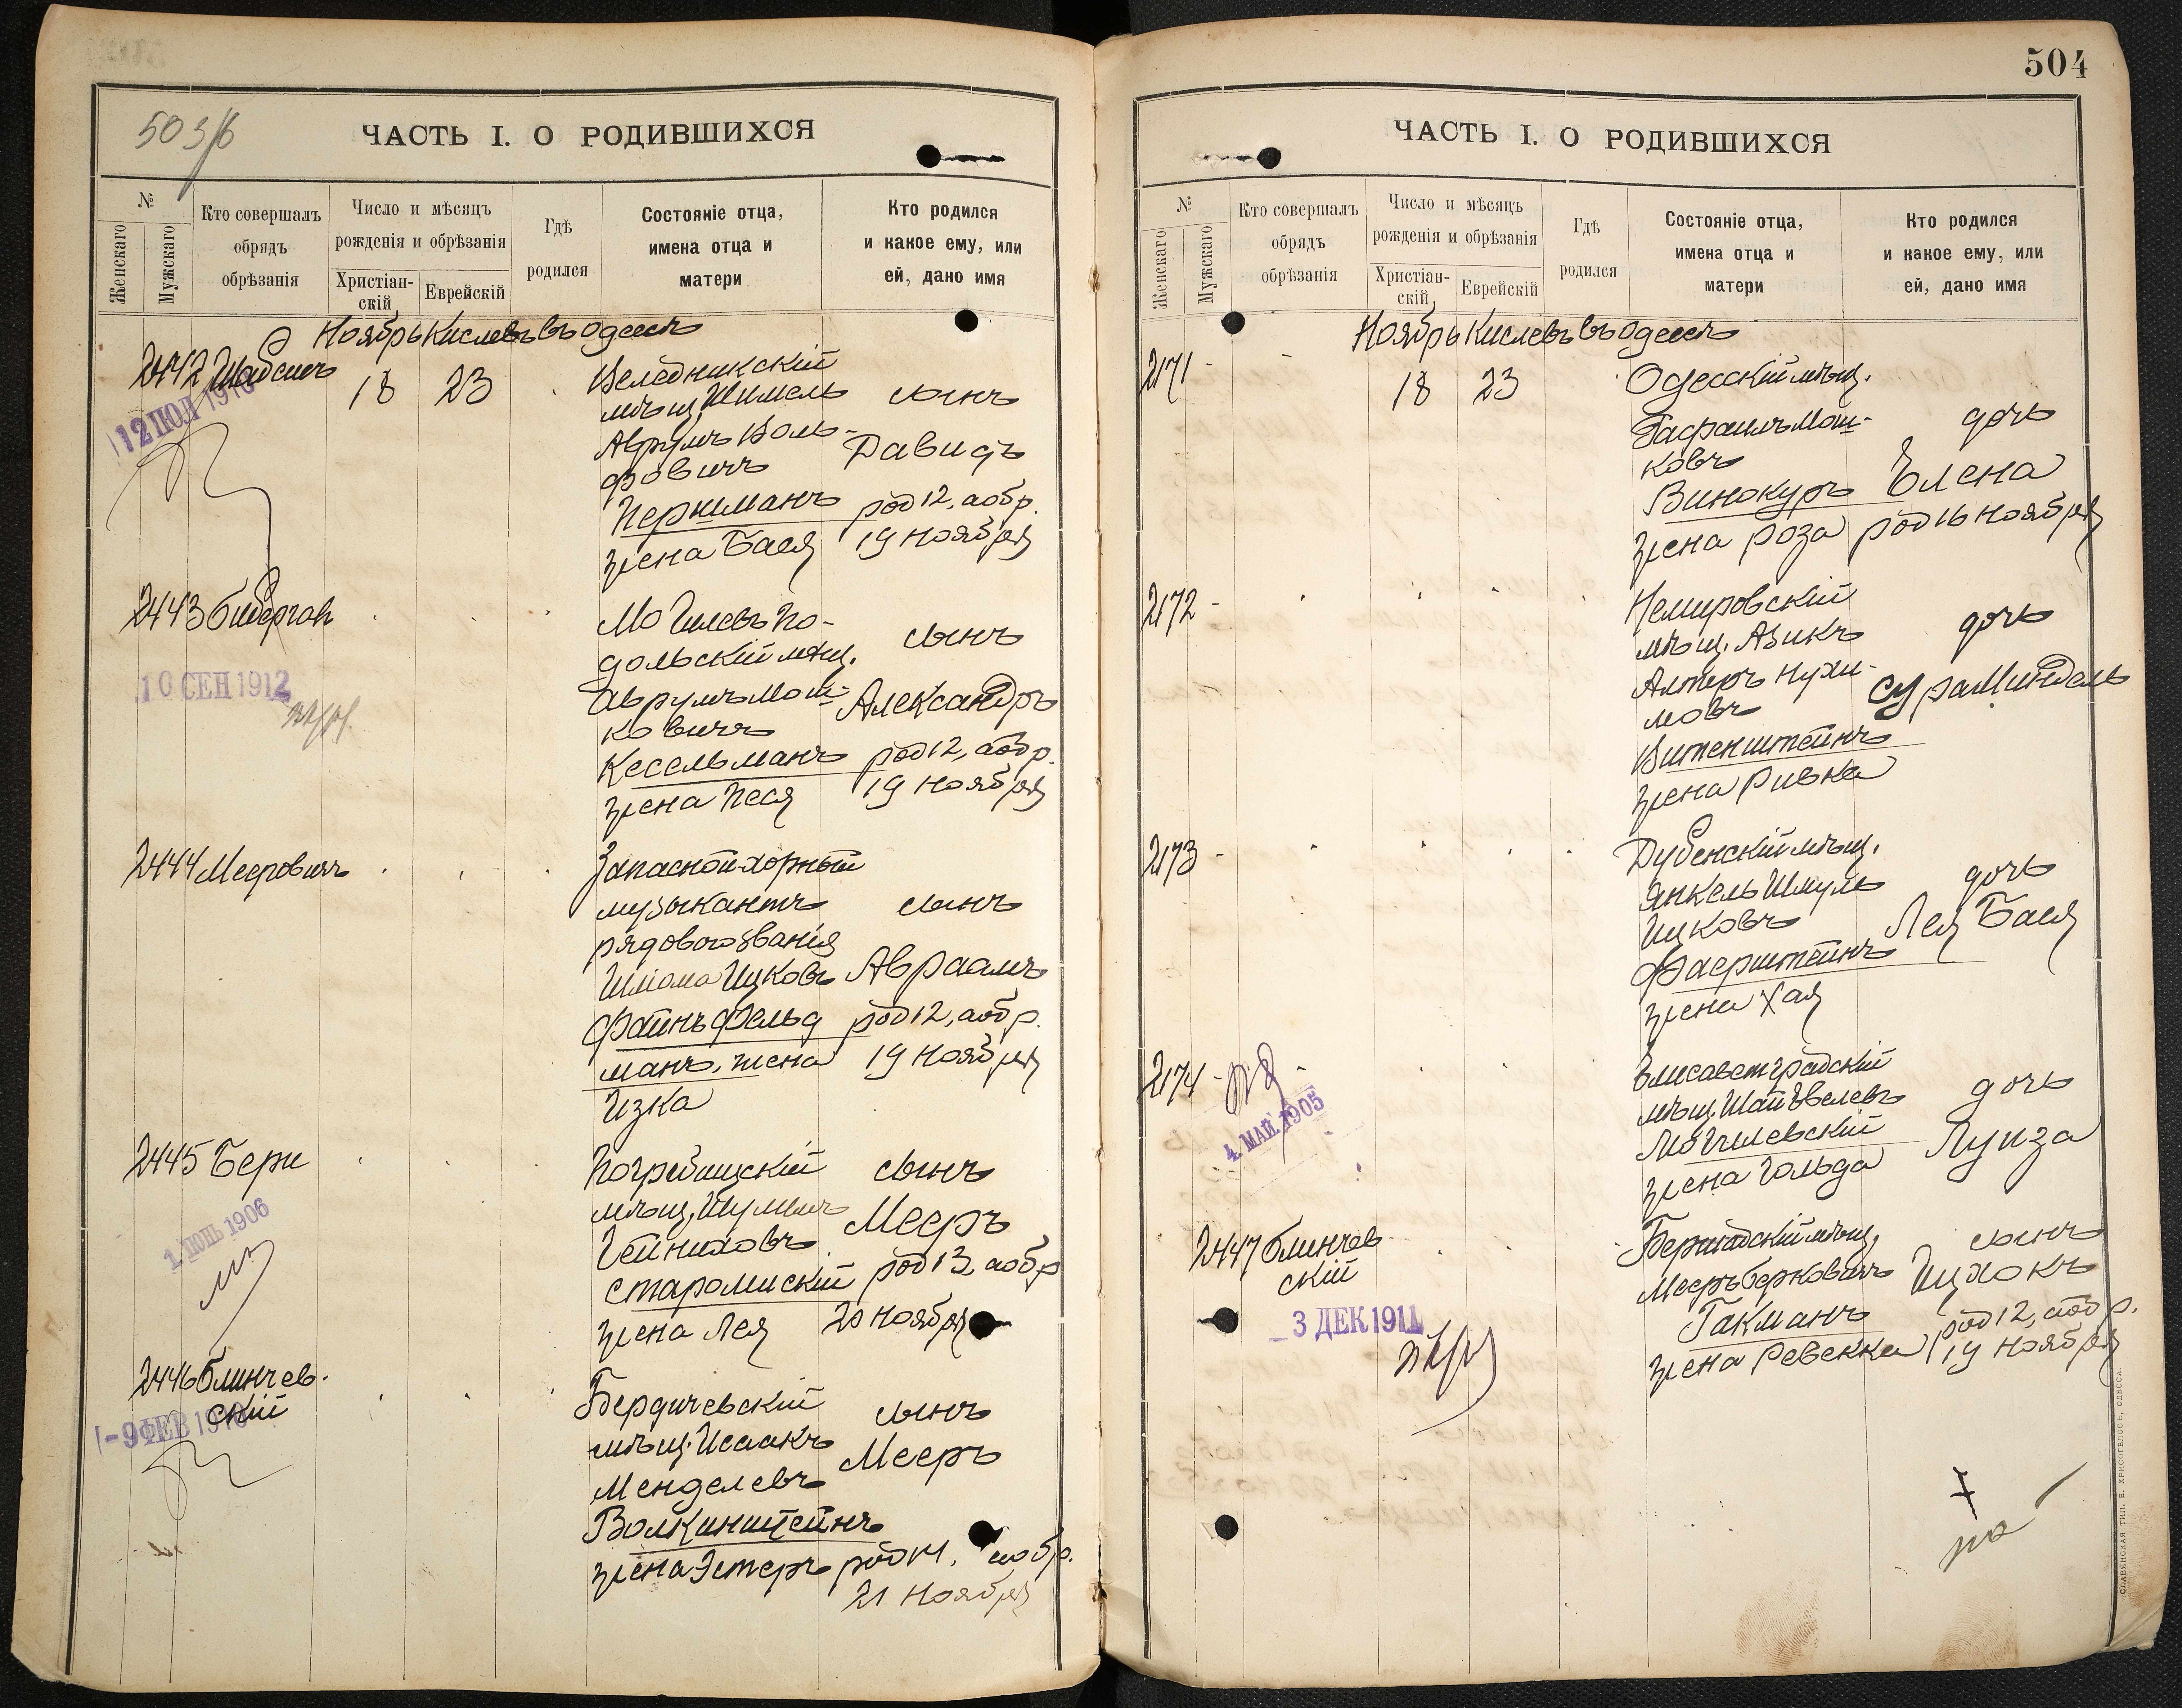 503/б
ЧАСТЬ I. О РОДИВШИХСЯ
№
Женскаго
Мужскаго
Кто совершалъ
обрядъ
обрѣзанія
Число и мѣсяцъ
рожденія и обрѣзанія
Христіан-
скій
Еврейскій
Гдѣ
родился
Состояніе отца,
имена отца и
матери
Кто родился
и какое ему, или
ей, дано имя
Ноябрь Кислевъ въ Одессѣ
2442
18 23
Веледникскій
мѣщ. Шмель
Аврумъ Воль-
фовичъ
Перкманъ
жена Бася
сынъ
Давидъ
род 12, а обр.
19 ноября
12 ІЮЛ 1910
2443
Могилевъ По-
дольскій мѣщ.
Аврумъ Мош-
ковичъ
Кесельманъ
жена Песя
сынъ
Александръ
род 12, а обр.
19 ноября
10 СЕН 1912
2444 Мееровичъ
Запасной хорный
музыкантъ
рядового званія
Шлома Ицковъ
Файнъфельд
манъ, жена
Изка
сынъ
Авраамъ
род 12, а обр.
19 ноября
2445 Бери
Погребищскій
мѣщ. Шулимъ
Гейниховъ
Старомискій
жена Лея
сынъ
Мееръ
род 13, а обр
20 ноября
1. ІЮНЬ 1906
2446 Блинчев-
скій
Бердичевскій
мѣщ. Исаакъ
Менделевъ
Волкинштейнъ
жена Эстеръ
сынъ
Мееръ
род 14, а обр.
21 ноября
-9 ФЕВ
504
ЧАСТЬ I. О РОДИВШИХСЯ
№
Женскаго
Мужскаго
Кто совершалъ
обрядъ
обрѣзанія
Число и мѣсяцъ
рожденія и обрѣзанія
Христіан-
скій
Еврейскій
Гдѣ
родился
Состояніе отца,
имена отца и
матери
Кто родился
и какое ему, или
ей, дано имя
Ноябрь Кислевъ въ Одессѣ
2171 - -
18 23
Одесскій мѣщ.
Гасраилъ Мош-
ковъ
Винокуръ
жена Роза
дочь
Елена
род 16 ноября
2172 -
Немировскій
мѣщ. Азикъ
Алтеръ Нухи-
мовъ
Витенштейнъ
жена Ривка
дочь
Сура Миндель
2173 -
Дубенскій мѣщ.
Янкель Шмуль
Ицковъ
Фаерштейнъ
жена Хая
дочь
Лея Бася
2174 -
4. МАЙ. 1905
Елисаветградскій
мѣщ. Шая Евелевъ
Могилевскій
жена Гольда
дочь
Луиза
2447 Блинчев-
скій
3 ДЕК 1911
Бершадскій мѣщ.
Мееръ Берковичъ
Гакманъ
жена Ревекка
сынъ
Ицхокъ
род 12, а обр.
19 ноября
СЛАВЯНСКАЯ ТИП. Е. ХРИСОГЕЛОСЪ, ОДЕССА.